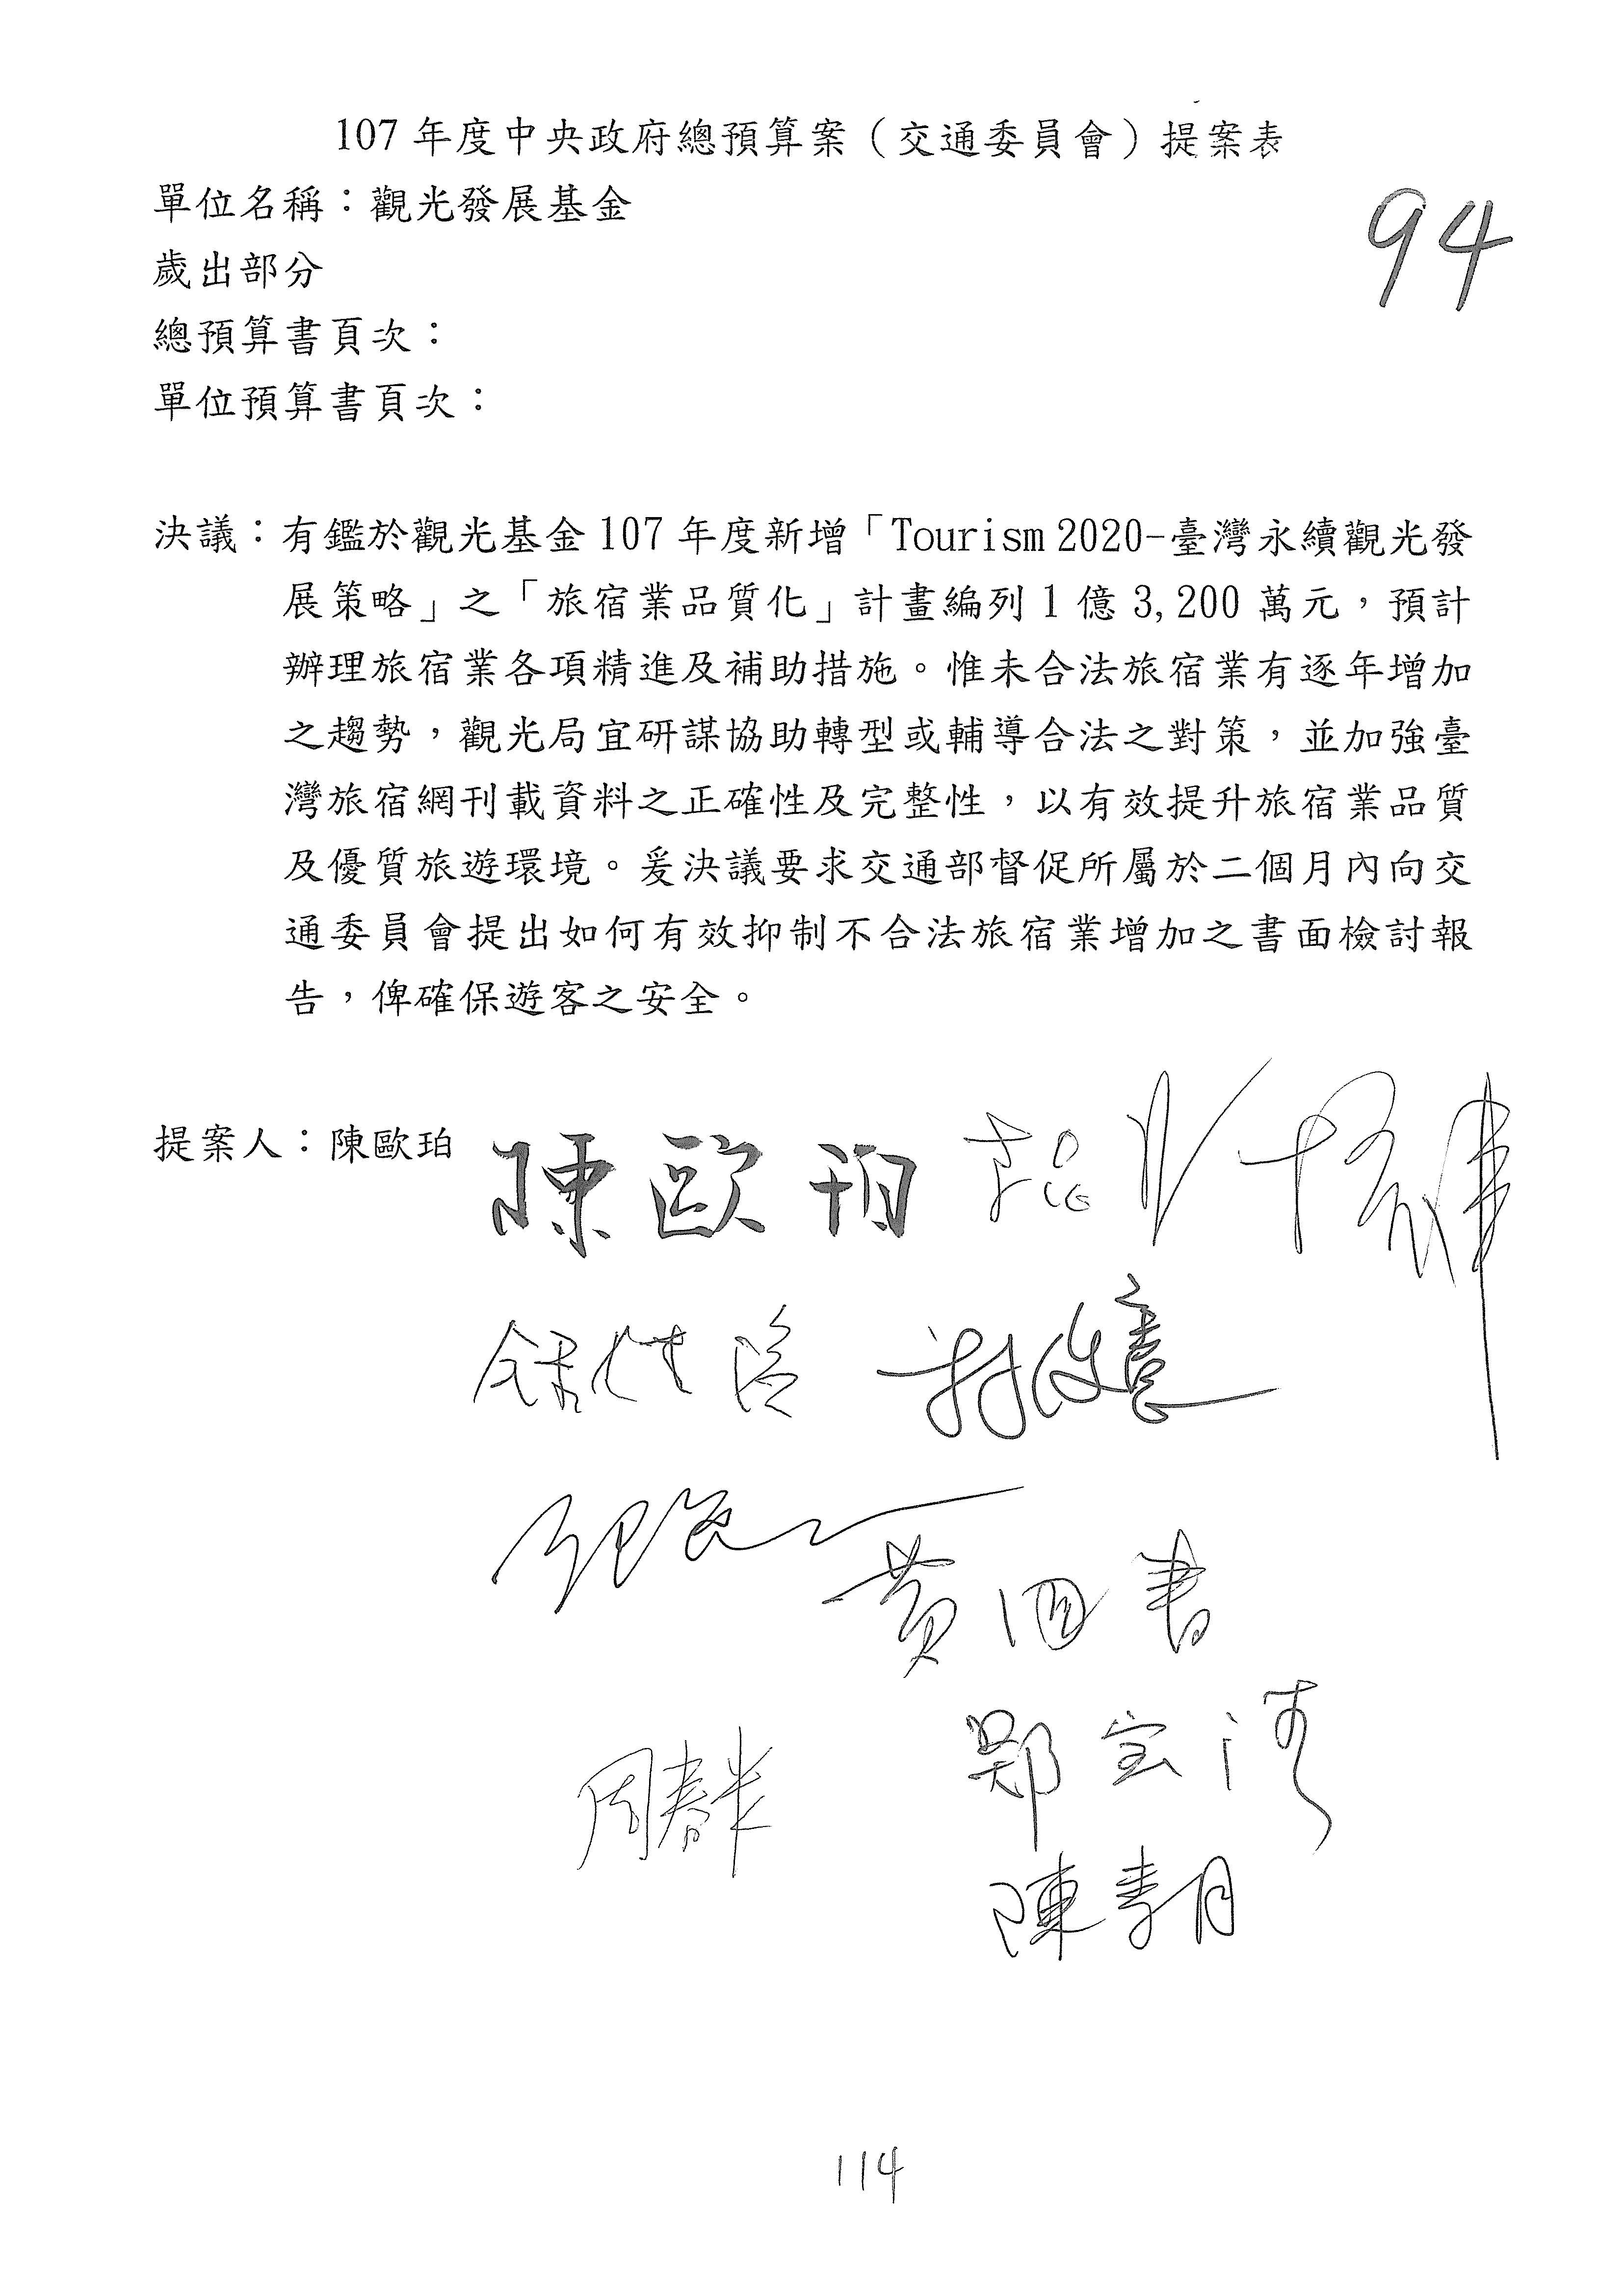 107 年度中央政府總預算案（交通委員會）提案表
單位名稱：觀光發展基金
94
歲出部分
總預算書頁次：
單位預算書頁次：
決議：有鑑於觀光基金 107 年度新增「Tourism 2020-臺灣永續觀光發
展策略」之「旅宿業品質化」計畫編列 1 億 3,200 萬元，預計
辦理旅宿業各項精進及補助措施。惟未合法旅宿業有逐年增加
之趨勢，觀光局宜研謀協助轉型或輔導合法之對策，並加強臺
灣旅宿網刊載資料之正確性及完整性，以有效提升旅宿業品質
及優質旅遊環境。爰決議要求交通部督促所屬於二個月內向交
通委員會提出如何有效抑制不合法旅宿業增加之書面檢討報
告，俾確保遊客之安全。
提案人：陳歐珀 陳歐珀
黃國書
鄭宝清
周春米
陳素月
114